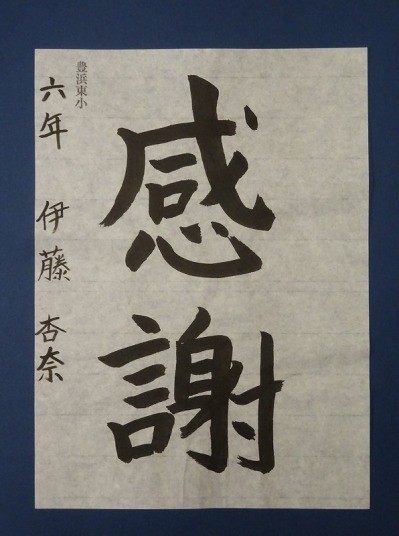 感謝
豊浜東小
六年 伊藤 杏奈